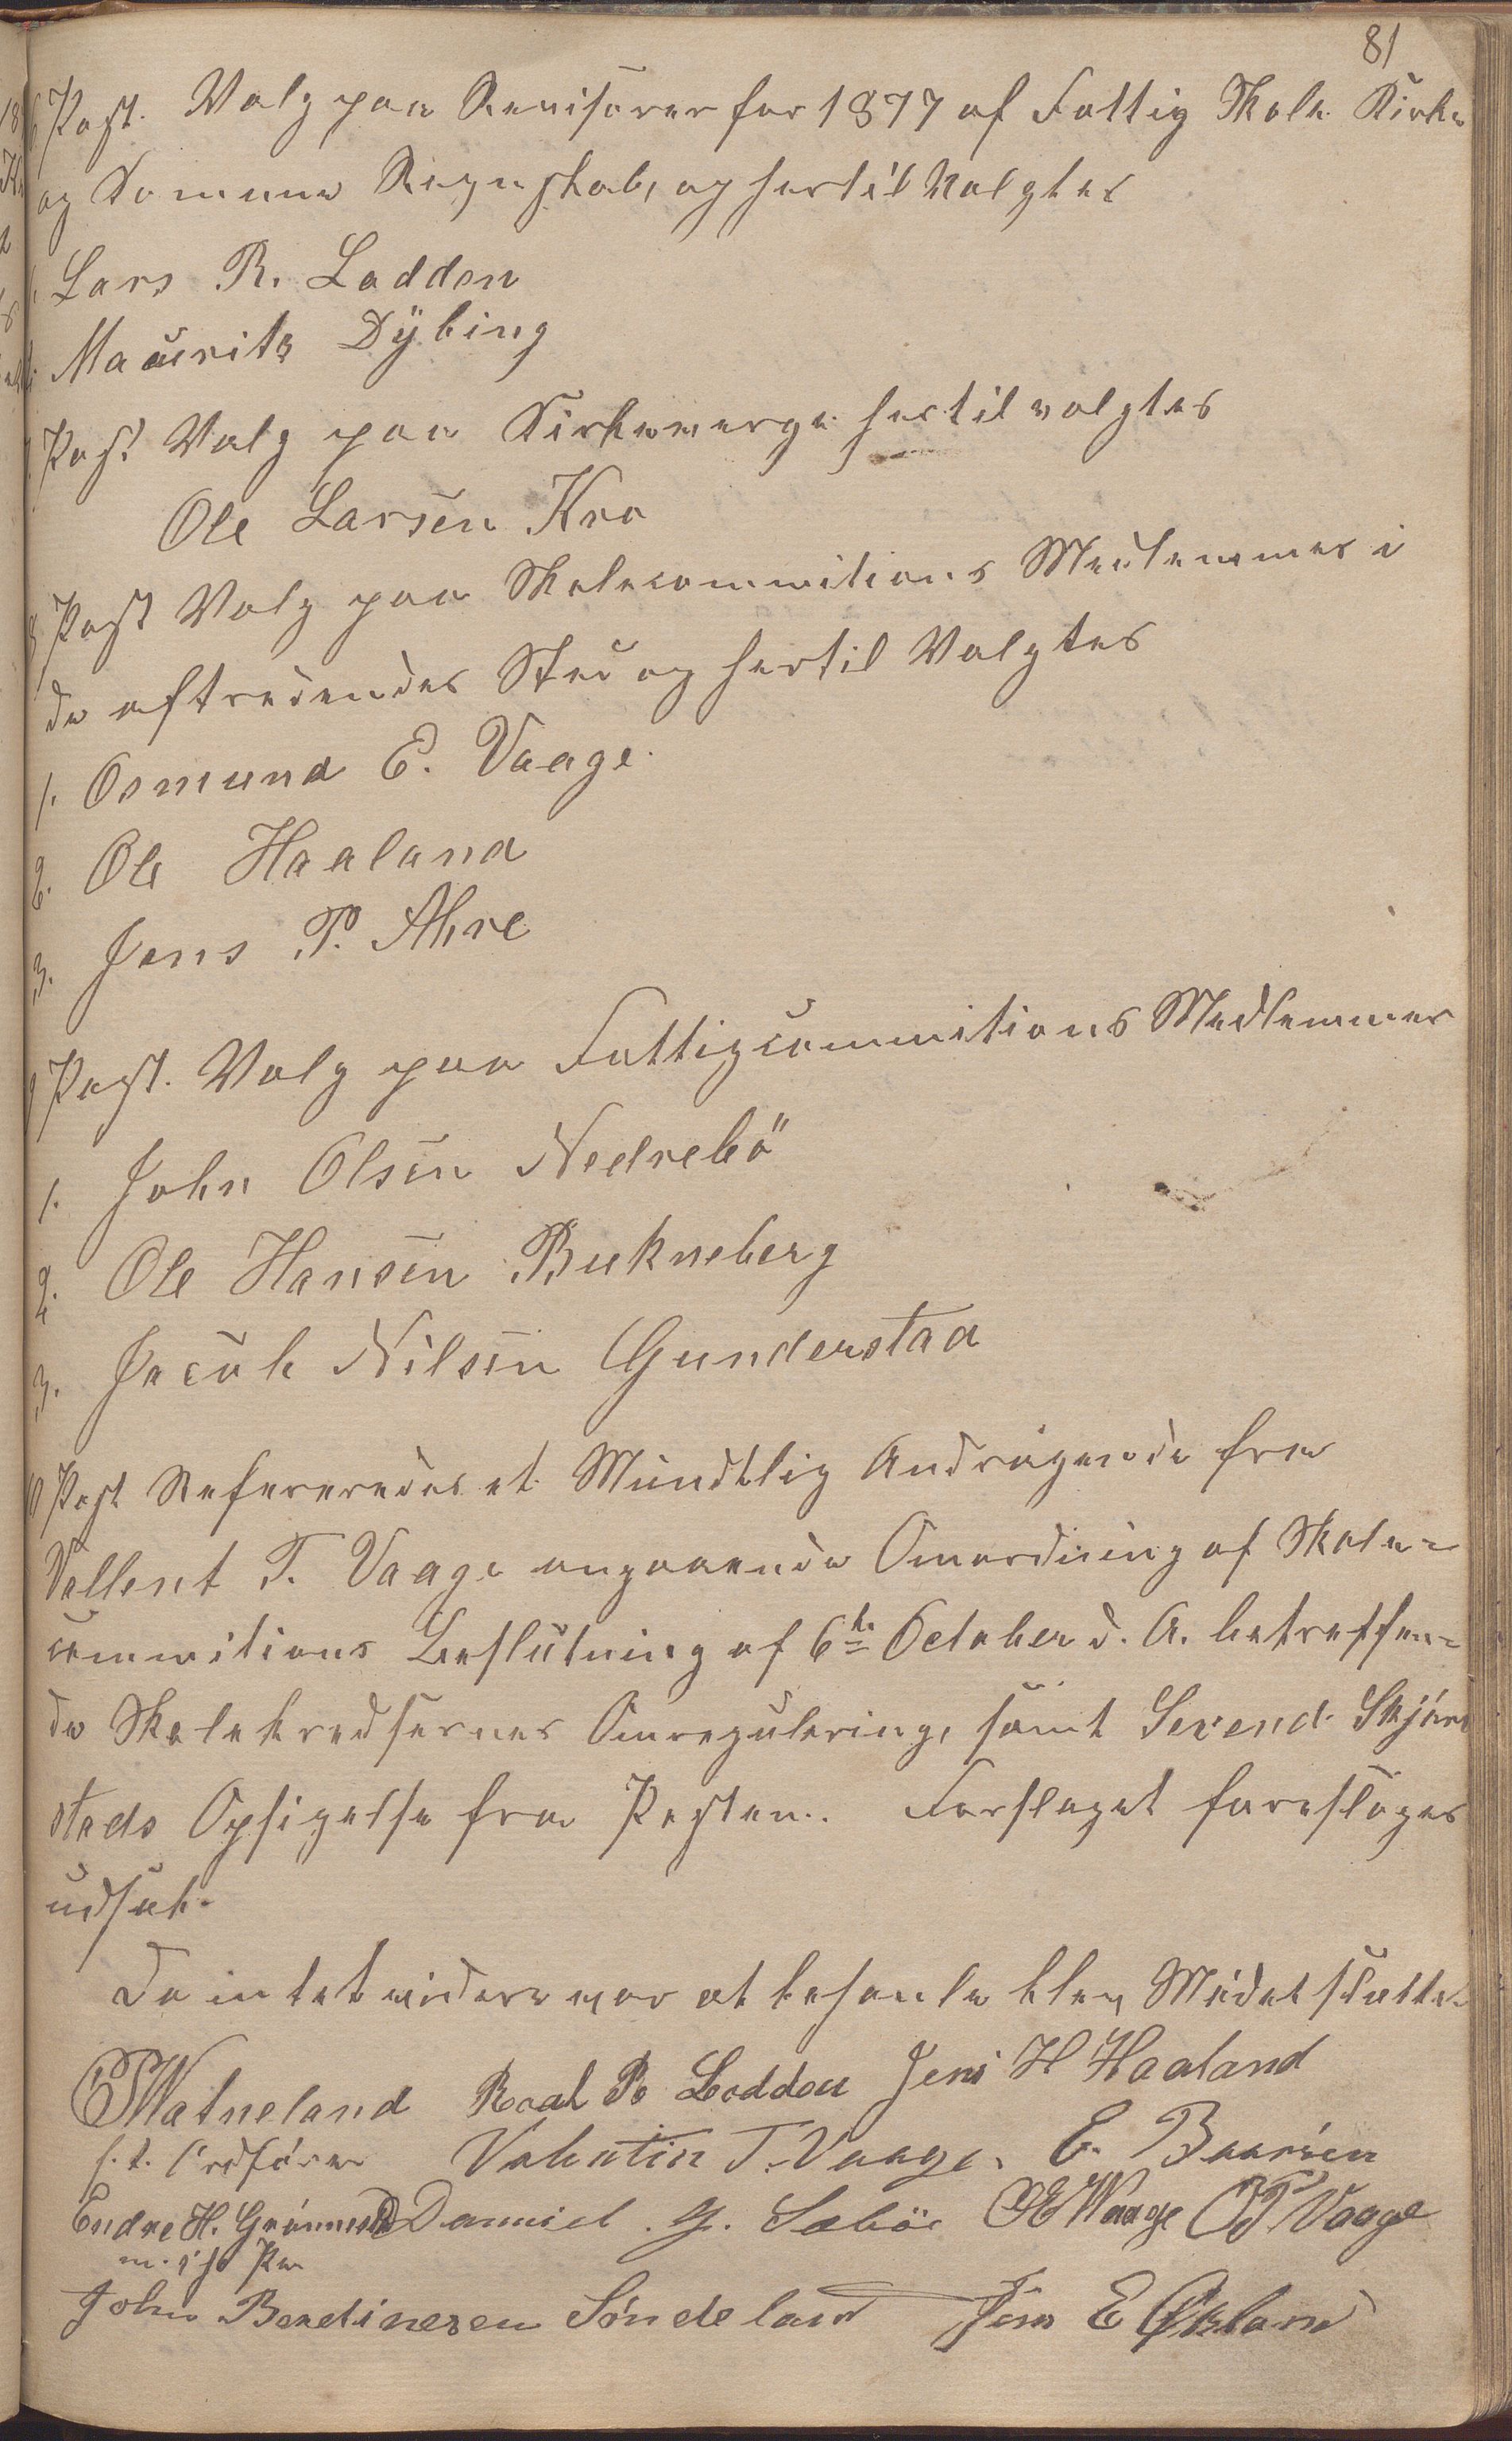 81
6 Post. Valg paa Revisorer for 1877 af Fattig Skole Kirke
og Komune Regnskab, og hertil Valgtes
Lars R. Lodden
Mauritz Dÿbing
7 Post Valg paa Kirkeverge hertil valgtes
Ole Larsen Kro
8 Post Valg paa Skolecommitions Medlemmer i
de aftredendes Sted og hertil Valgtes
1. Osmund E. Vaage.
2. Ole Haaland
3. Jens P. Ahre
9 Post. Valg paa Fattigcommitions Medlemmer
1. John Olsen Nedrebö
2. Ole Hansen Bukneberg
3. Jacob Nilsen Gunderstad
10 Post Refereredes et Mundtlig Andragende fra
Vallent T. Vaage angaaende Omordning af Skole=
commitions Beslutning af 6te October d. A. betreffen=
de Skolekredsernes Omregulering, samt Serend. Skjörn
stads Opsigelse fra Posten. Forslaget foresloges
udsat.
Da intet videre var at behandle blev Mödet slutte
Watneland Roal R. Loddou Jens H Haaland
f. t. Ordförer Valentin T. Vaage. E. Baarsen
Endre H. Grönnes Daniel. G. Sæbö OE Waage OT Vaage
m. i. P.
John Berdinesen Söndeland Jens E Økland